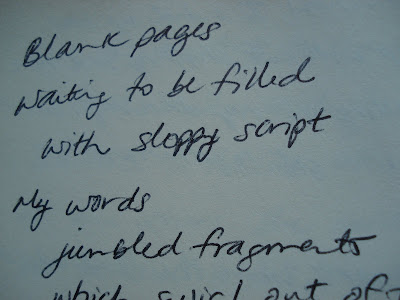 Blank pages
waiting to be filled
with sloppy script
My words
jumbled fragments
which swirl out of